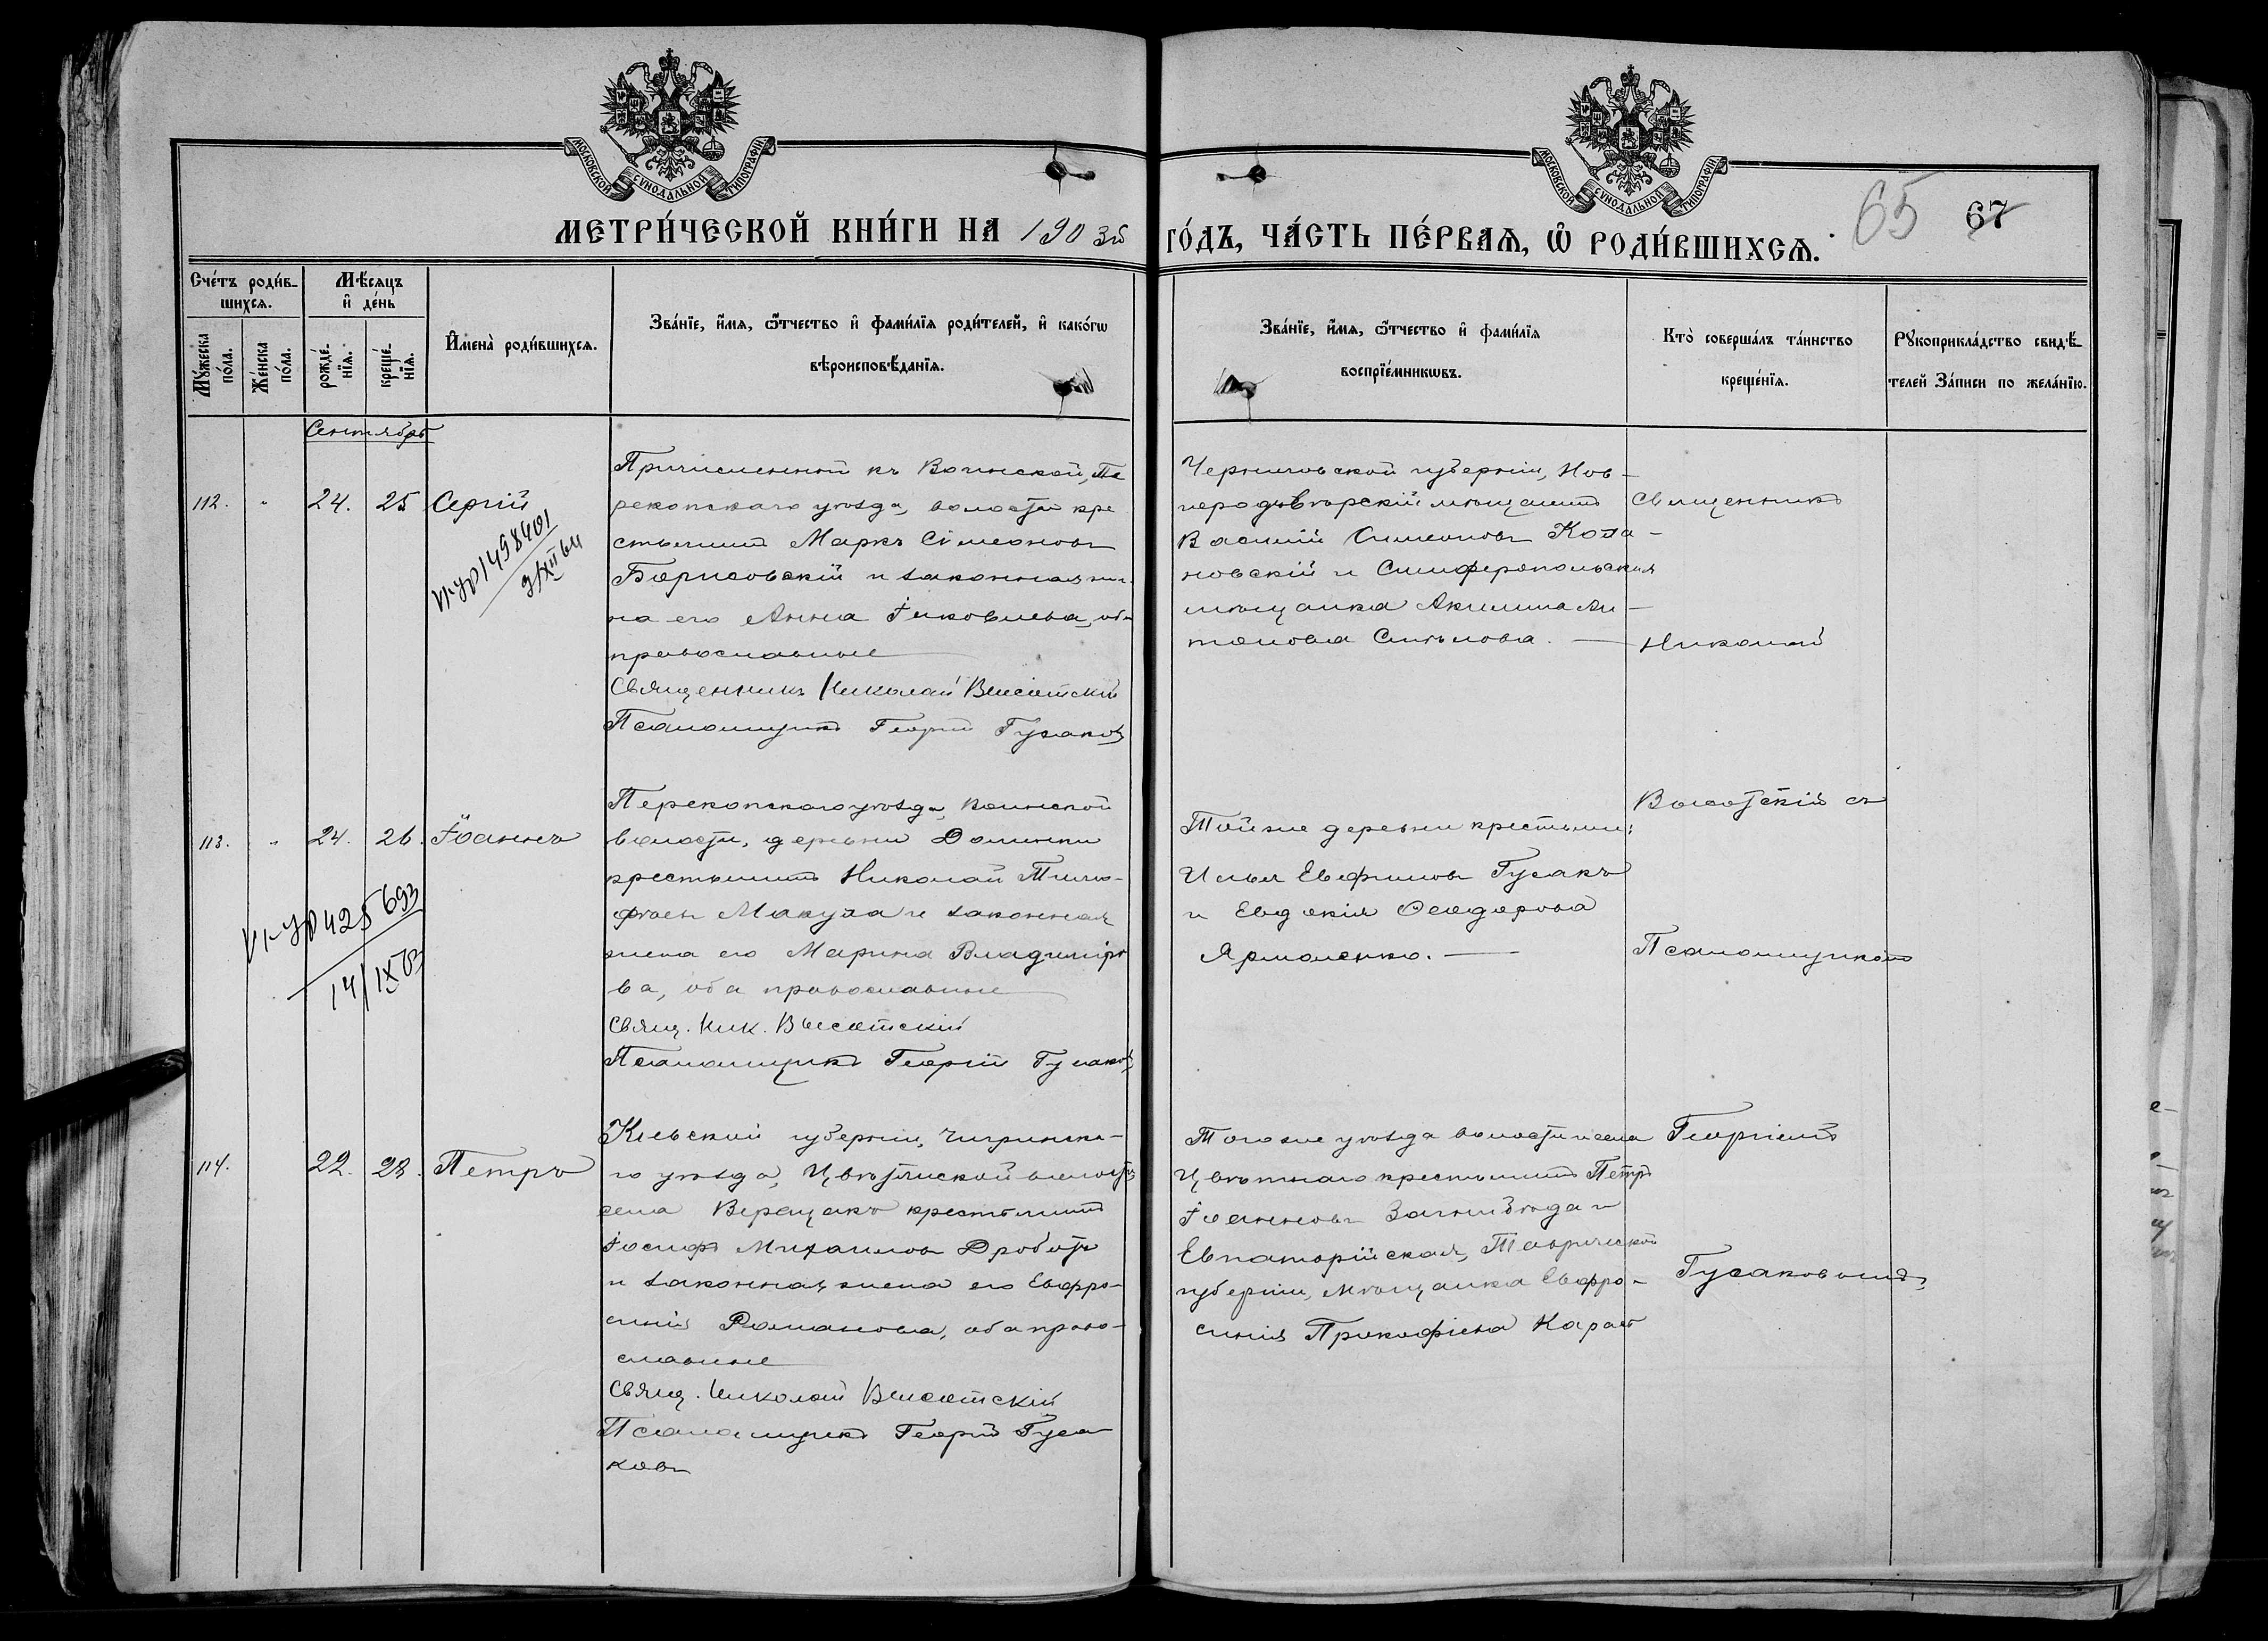 МОСКОВСКОЙ СѴНОДАЛЬНОЙ ТИПОГРАФІИ
МОСКОВСКОЙ СѴНОДАЛЬНОЙ ТИПОГРАФІИ
МЕТРИ́ЧЕСКОЙ КНИ́ГИ НА 1903й ГО́ДЪ, ЧА́СТЬ ПЕ́РВАѦ, Ѡ҆ РОДИ́ВШИХСѦ.
65 67
Сче́тъ роди́в-
шихсѧ.
Мѣ́сѧцъ
и҆ де́нь
Мꙋ́жеска по́ла.
Же́нска по́ла.
рожде́-нїѧ.
креще́-нїѧ.
И҆мена̀ роди́вшихсѧ.
Зва́нїе, и҆́мѧ, ѻ҆́тчество и҆ фамѝлїѧ роди́телей, и҆ како́гѡ
вѣроисповѣ́данїѧ.
Зва́нїе, и҆́мѧ, ѻ҆́тчество и҆ фамѝлїѧ
воспрїе́мникѡвъ.
Кто̀ соверша́лъ та́инство
креще́нїѧ.
Рꙋкоприкла́дство свидѣ́-
телей За́писи по жела́нїю.
Сентябрь
112. " 24. 25 Сергій
Причисленный къ Воинской, Пе
рекопскаго уѣзда, волости кре
стьянинъ Маркъ Сімеоновъ
Борисовскій и законная же-
на его Анна Іаковлева, оба
православные
Священникъ Николай Высотскій
Псаломщикъ Георгій Гусаковъ
Черниговской губерніи, Нов-
городсѣверскій мѣщанинъ
Василій Симеоновъ
новскій и Симферопольская
мѣщанка Акилина
Священникъ
Николай
113. " 24. 26. Іоаннъ
Перекопскаго уѣзда, Воинской
волости, деревни Долинки
крестьянинъ Николай Тимо-
ѳеевъ Макуха и законная
жена его Марина Владиміро
ва, оба православные
Свящ. Ник. Высотскій
Псаломщикъ Георгій Гусаковъ
14/IX
Той же деревни крестьяне:
Илья Евфимовъ Гусакъ
и Евдокія Ѳеодорова
Ярмоленко.
Высотскій съ
Псаломщикомъ
114. 22. 28. Петръ
Кіевской губерніи, Чигиринска-
го уѣзда, Цвѣтянской волости
села Верещакъ крестьянинъ
Іосифъ Михаиловъ Дроботъ
и законная жена его Евфро-
синія Романова, оба право-
славные
Свящ. Николай Высотскій
Псаломщикъ Георгій Гуса
ковъ
Того же уѣзда волости и села
Цвѣтнаго крестьянинъ Петръ
Іоанновъ Загнибѣда и
Евпаторійская, Таврической
губерніи, мѣщанка Евфро-
синія Прокофіева
Георгіемъ
Гусаковымъ.